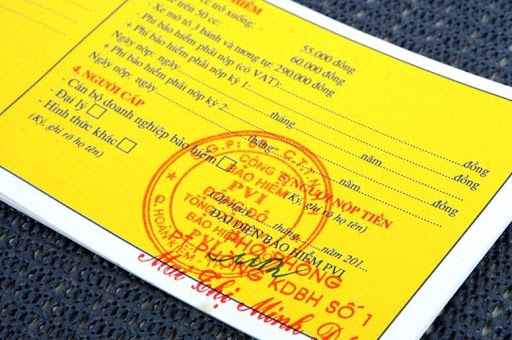 HIỂM
cc trở xuống: 55.000 đồng
e trên 50 cc: 60.000 đồng
- Xe mô tô 3 bánh và tương tự: 290.000 đồng
+ Phí bảo hiểm phải nộp (có VAT): đồng
+ Phí bảo hiểm phải nộp kỳ 1: đồng
Ngày nộp: ngày tháng năm
+ Phí bảo hiểm phải nộp kỳ 2: đồng
Ngày nộp: ngày tháng năm
4. NGƯỜI CẤP
- Cán bộ doanh nghiệp bảo hiểm
- Đại lý
- Hình thức khác
(Ký, ghi rõ họ tên)
NGƯỜI NỘP TIỀN
(Ký, ghi rõ họ tên)
Cấp ngày tháng năm 201
ĐẠI DIỆN BẢO HIỂM PVI
CÔNG TY
BẢO HIỂM
PVI
ĐÔNG ĐÔ
TỔNG
BẢO HIỂM
Q. HOÀN KIẾM
PHÓ PHÒNG
P. KDBH SỐ 1
Mai Thị Minh